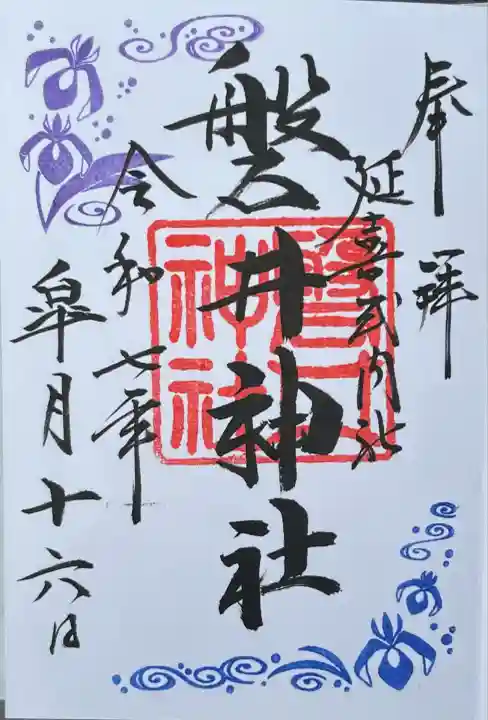 奉拝
延喜式内社
磐井神社
令和七年
皐月十六日